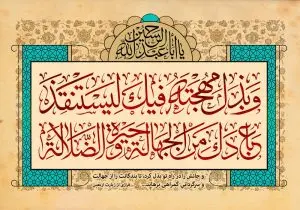 یا ابا عبد الله الحسین
وَبَذَلَ مُهْجَتَهُ فيكَ لِيَسْتَنْقِذَ
عِبادَكَ مِنَ الْجَهالَةِ وَحَيْرَةِ الضَّلالَةِ
و جانش را در راه تو بذل کرد، تا بندگانت را از جهالت
و سرگردانی گمراهی برهاند.